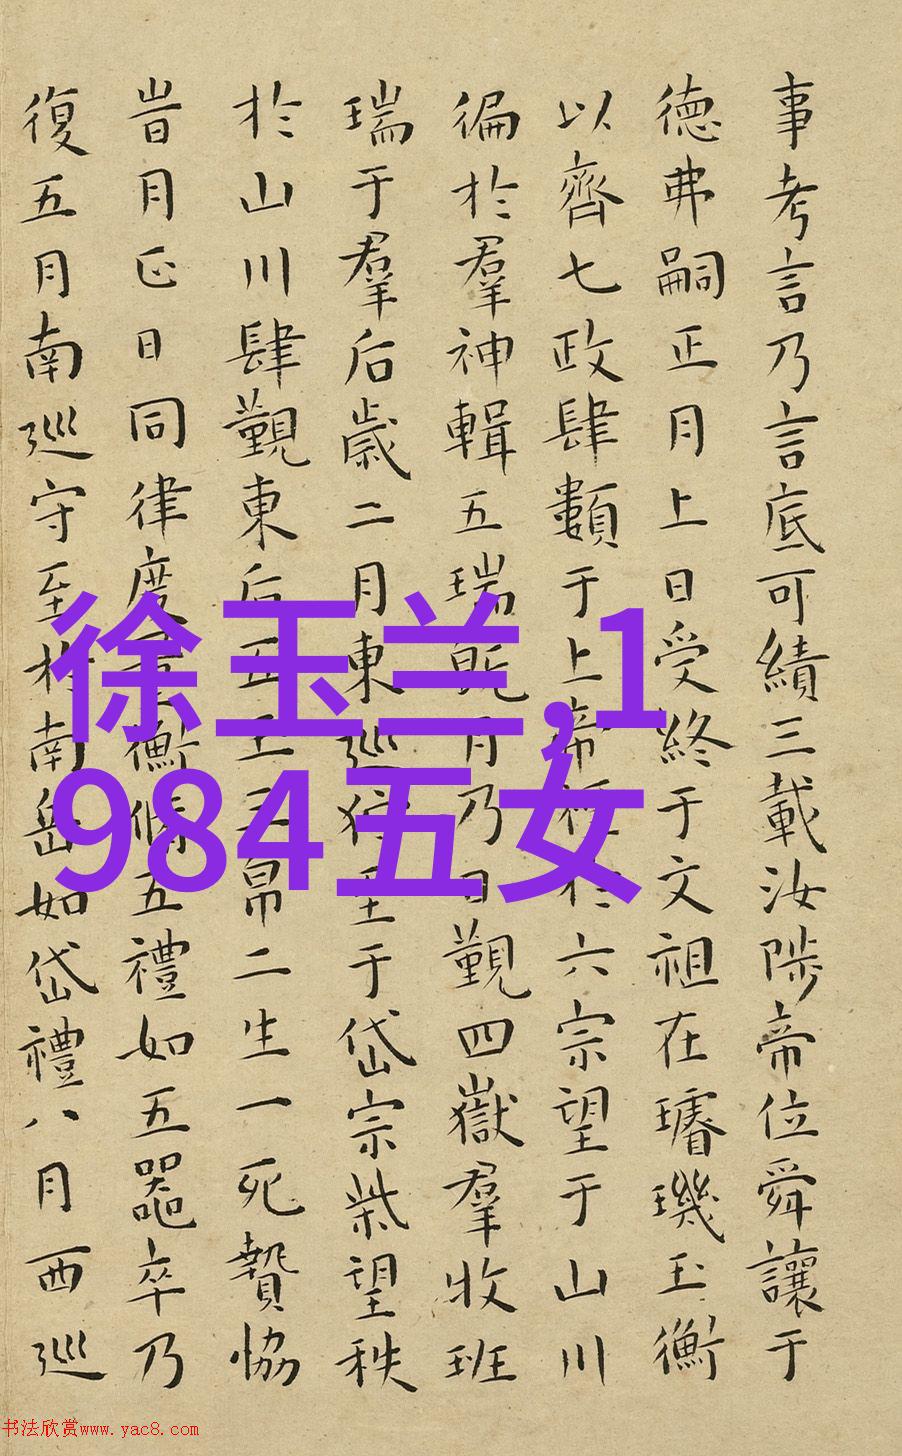 事考言乃言底可績三載汝陟帝位舜讓于
德弗嗣正月上日受終于文祖在璿璣玉衡
以齊七政肆類于上帝於六宗望于山川
徧於羣神輯五瑞既月乃日覲四嶽羣牧班
瑞于羣后歲二月東巡狩至于岱宗柴望秩
於山川肆覲東后五玉三帛二生一死贄協
旹月正日同律度量衡脩五禮如五器卒乃
復五月南巡守至於南岳如岱禮八月西巡
徐玉兰,1
984五女
书法欣赏www.yac8.com